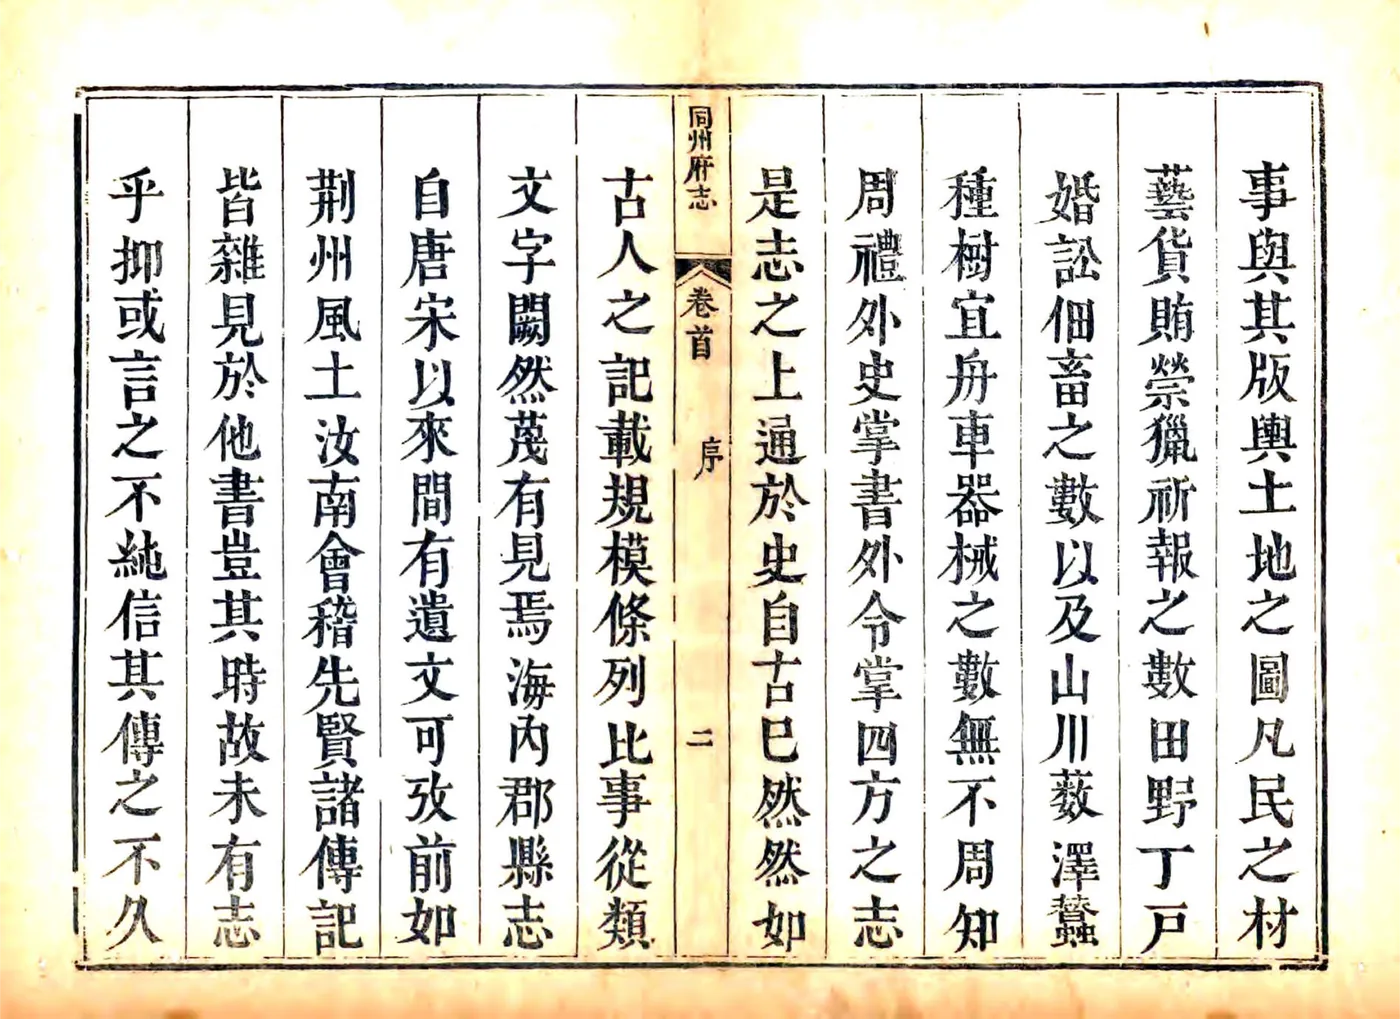 事與其版輿土地之圖凡民之材
藝貨賄禜獵祈報之數田野丁戸
婚訟佃畜之數以及山川藪澤蠶
種樹宜舟車器械之數無不周知
周禮外史掌書外令掌四方之志
是志之上通於史自古已然然如
同州府志 卷首 序 二
古人之記載規模條列比事從類
文字闕然蔑有見焉海內郡縣志
自唐宋以來間有遺文可攷前如
荆州風土汝南會稽先賢諸傳記
皆雜見於他書豈其時故未有志
乎抑或言之不純信其傳之不久